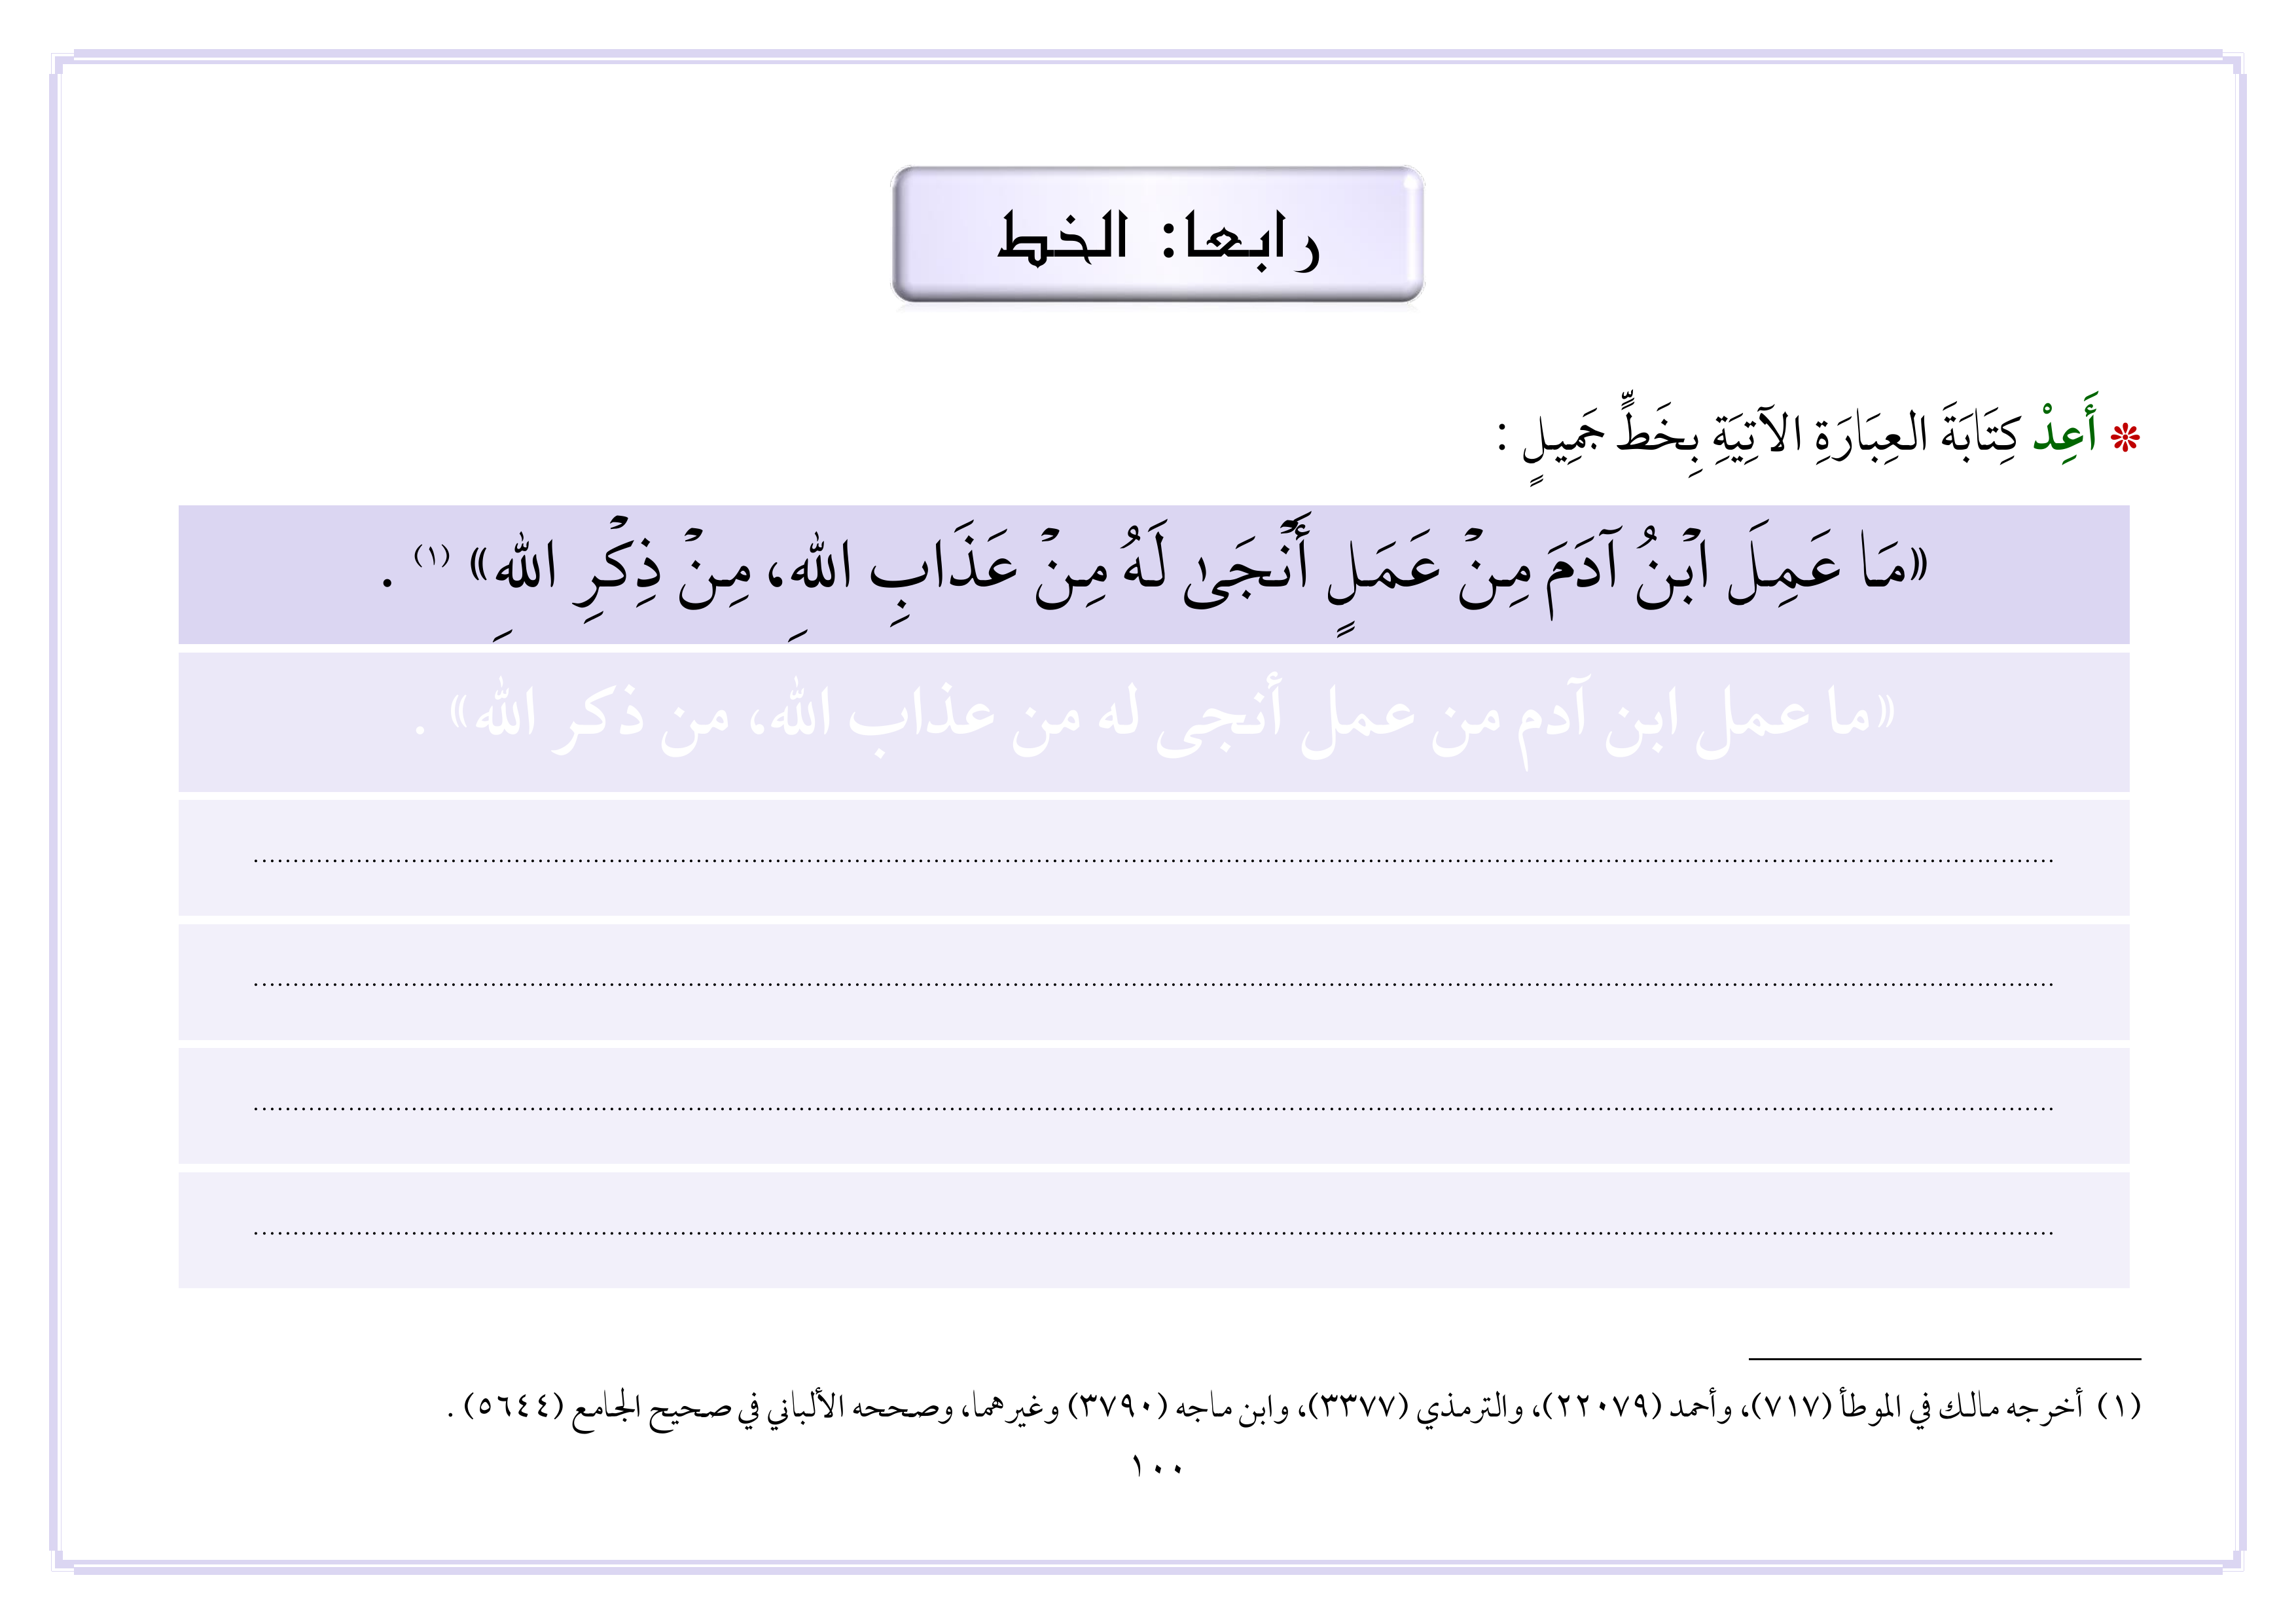 رابعا: الخط
* أَعِدْ كِتَابَةَ العِبَارَةِ الآتِيَةِ بِخَطٍّ جَمِيلٍ :
«مَا عَمِلَ ابْنُ آدَمَ مِنْ عَمَلٍ أَنْجَىٰ لَهُ مِنْ عَذَابِ اللهِ، مِنْ ذِكْرِ اللهِ» (١) .
«ما عمل ابن آدم من عمل أنجى له من عذاب الله، من ذكر الله» .
(١) أخرجه مالك في الموطأ (٧١٧)، وأحمد (٢٢٠٧٩)، والترمذي (٣٣٧٧)، وابن ماجه (٣٧٩٠) وغيرهما، وصححه الألباني في صحيح الجامع (٥٦٤٤) .
١٠٠